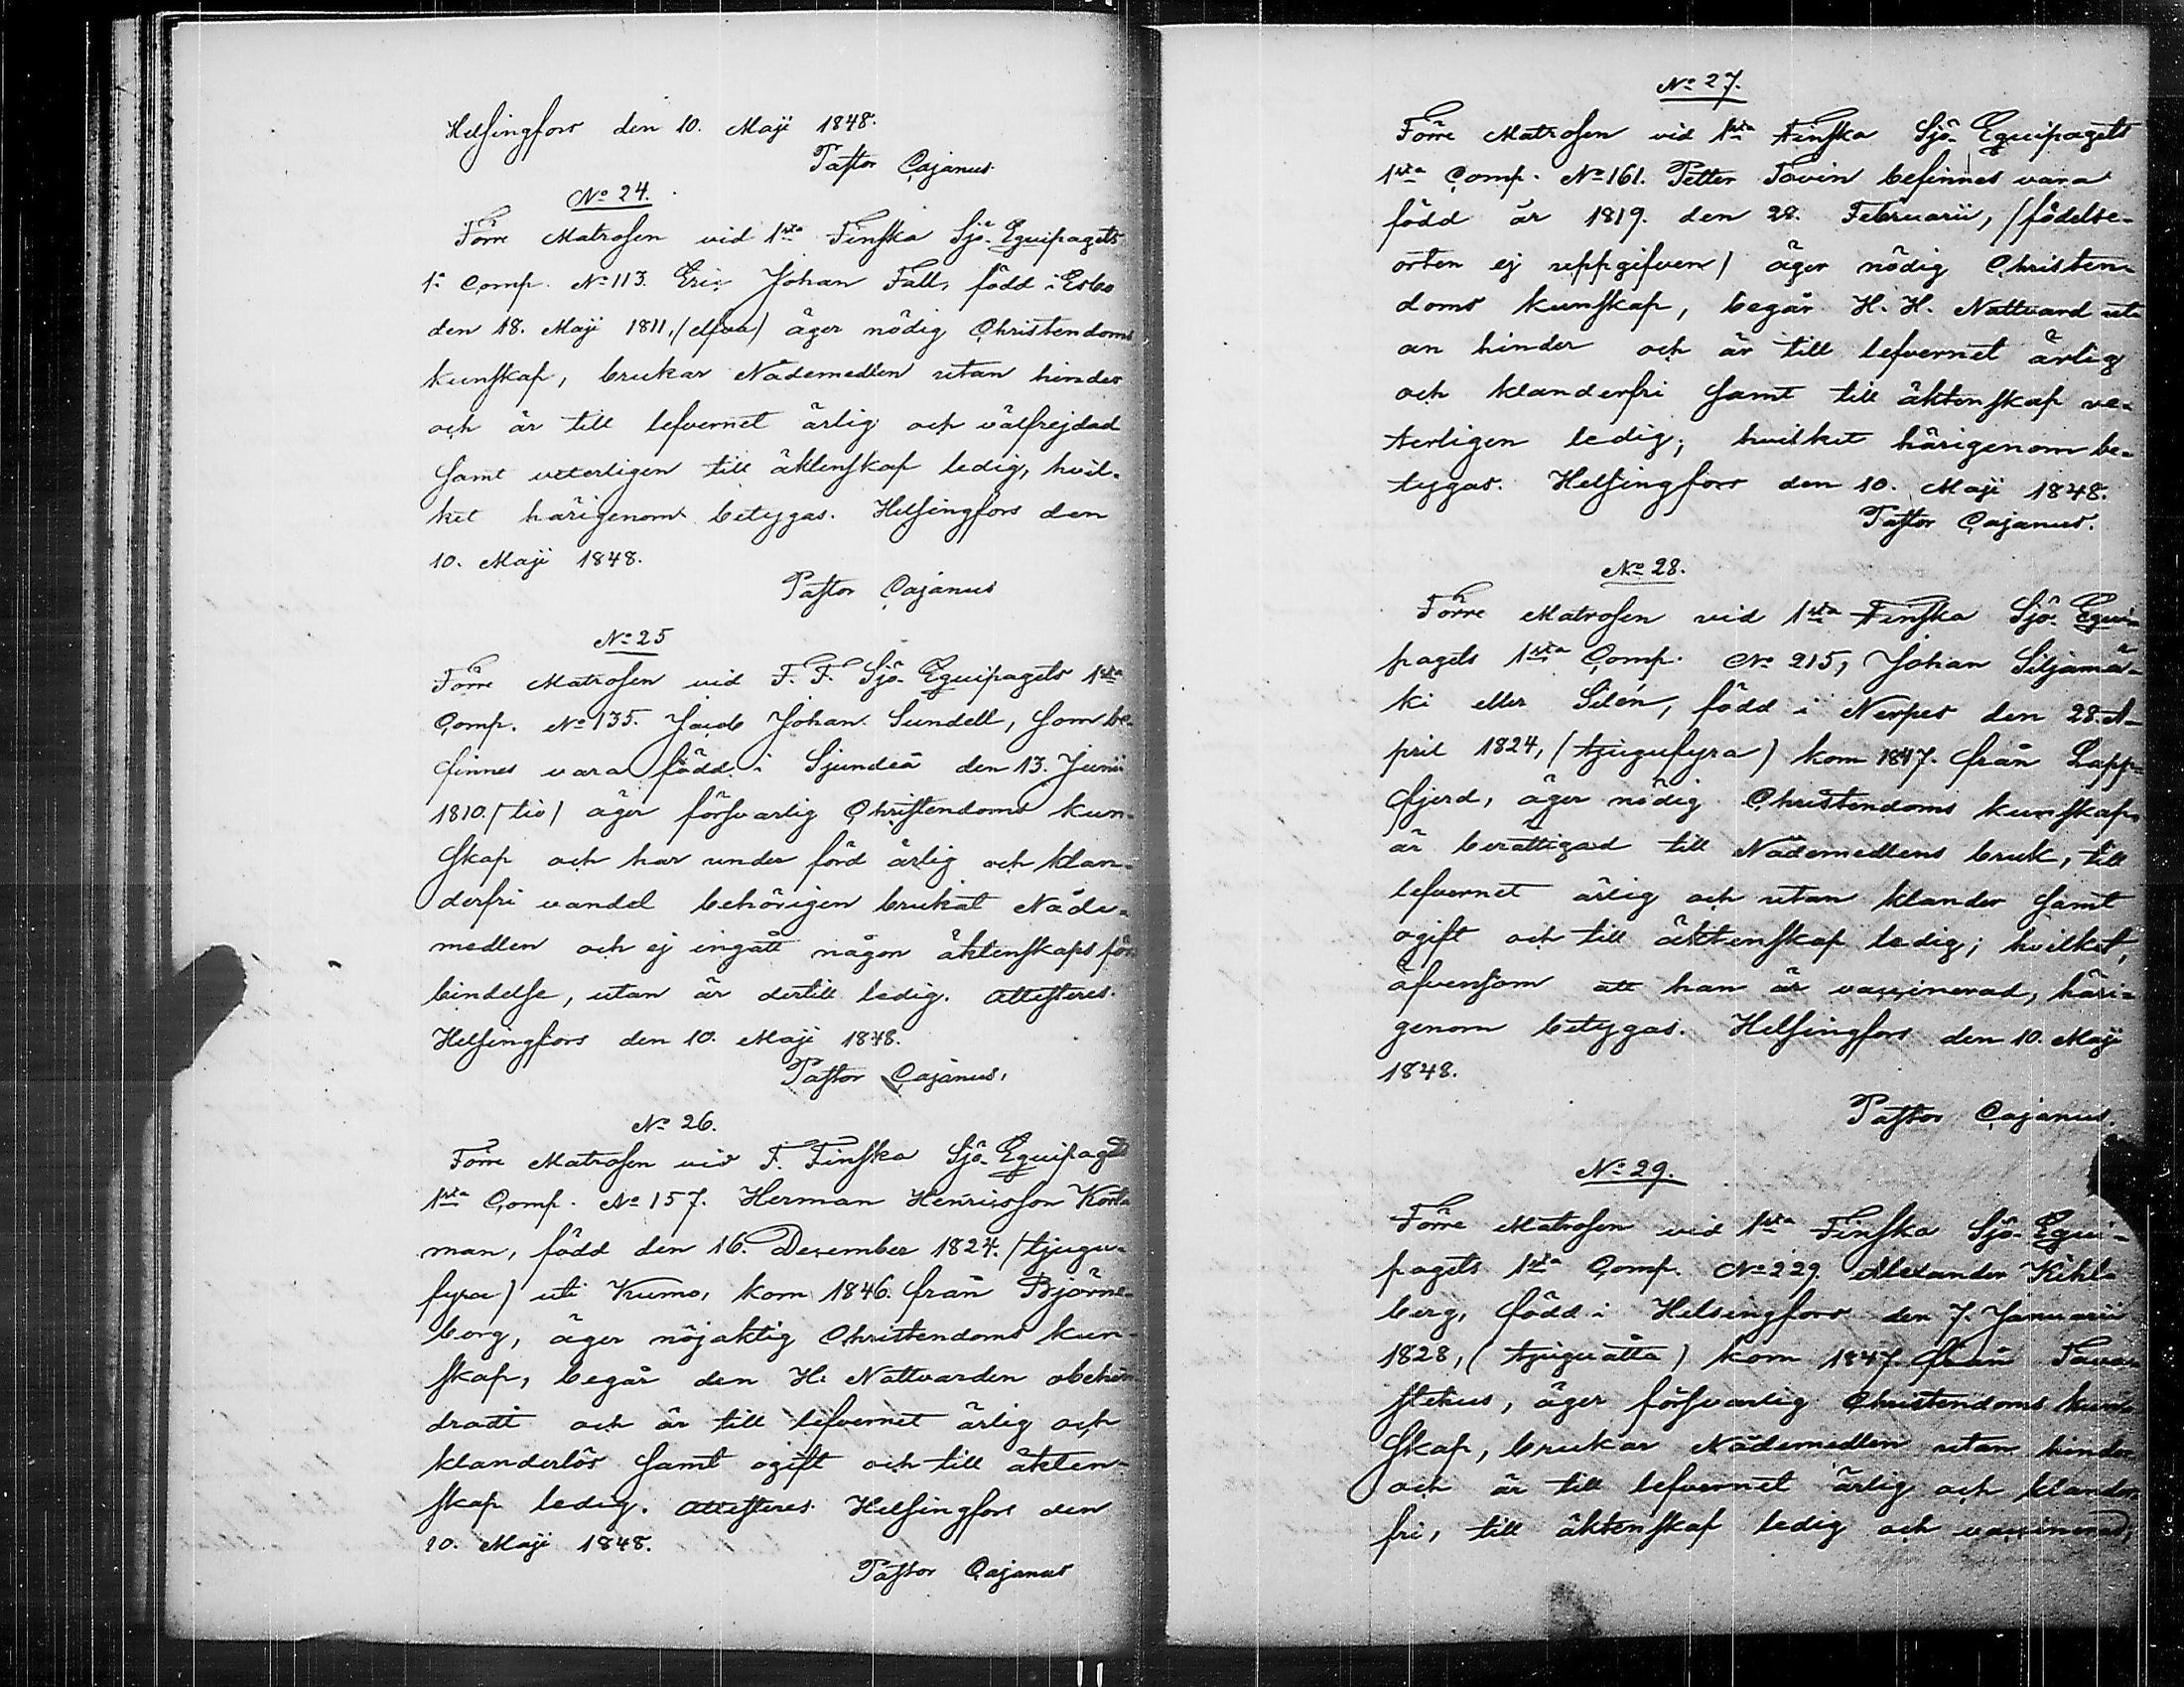 Helsingfors den 10. Maji 1848.
Pastor Cajanus.
No 24.
Förre Matrosen vid 1sta Finska Sjö-Equipagets
1a Comp. No 113. Eric Johan Fält, född i Esbo
den 18. Maji 1811, (elfva) äger nödig Christendoms
kunskap, brukar Nådemedlen utan hinder
och är till lefvernet ärlig och välfrejdad
samt veterligen till äktenskap ledig, hvil-
ket härigenom betygas. Helsingfors den
10. Maji 1848.
Pastor Cajanus
No 25
Förre Matrosen vid F. F. Sjö-Equipagets 1sta
Comp. No 135. Jacob Johan Sundell, som be-
finnes vara född i Sjundeå den 13. Junii
1810. (tio) äger försvarlig Christendoms kun-
skap och har under förd ärlig och klan-
derfri vandel behörigen brukat Nåde-
medlen och ej ingått någon äktenskaps för-
bindelse, utan är dertill ledig. Attesteres.
Helsingfors den 10. Maji 1848.
Pastor Cajanus.
No 26.
Förre Matrosen vid F. Finska Sjö-Equipagets
1sta Comp. No 157. Herman Henricsson
man, född den 16. December 1824. (tjugu-
fyra) uti Kumo, kom 1846. från Björne-
borg, äger nöjaktig Christendoms kun-
skap, begår den H. Nattvarden obehin-
dradt och är till lefvernet ärlig och
klanderlös samt ogift och till äkten-
skap ledig. Attesteres. Helsingfors den
10. Maji 1848.
Pastor Cajanus
No 27.
Förre Matrosen vid 1sta Finska Sjö-Equipagets
1sta Comp. No 161. Petter Tovin befinnes vara
född år 1819. den 28. Februarii, (födelse-
orten ej uppgifven) äger nödig Christen-
doms kunskap, begår H. H. Nattvard ut-
an hinder och är till lefvernet ärlig
och klanderfri samt till äktenskap ve-
terligen ledig; hvilket härigenom be-
tygas. Helsingfors den 10. Maji 1848.
Pastor Cajanus.
No 28.
Förre Matrosen vid 1sta Finska Sjö-Equi-
pagets 1sta Comp. No 215, Johan Siljamä-
ki eller Silén, född i Nerpes den 28. A-
pril 1824, (tjugufyra) kom 1847. från Lapp-
fjerd, äger nödig Christendoms kunskap,
är berättigad till Nådemedlens bruk, till
lefvernet ärlig och utan klander samt
ogift och till äktenskap ledig; hvilket,
äfvensom att han är vaccinerad, häri-
genom betygas. Helsingfors den 10. Maji
1848.
Pastor Cajanus.
No 29.
Förre Matrosen vid 1sta Finska Sjö-Equi-
pagets 1sta Comp. No 229. Alexander Kihl-
berg, född i Helsingfors den 7. Januarii
1828, (tjuguåtta) kom 1847. från Tava-
stehus, äger försvarlig Christendoms kun-
skap, brukar Nådemedlen utan hinder
och är till lefvernet ärlig och klander-
fri, till äktenskap ledig och vaccinerad,